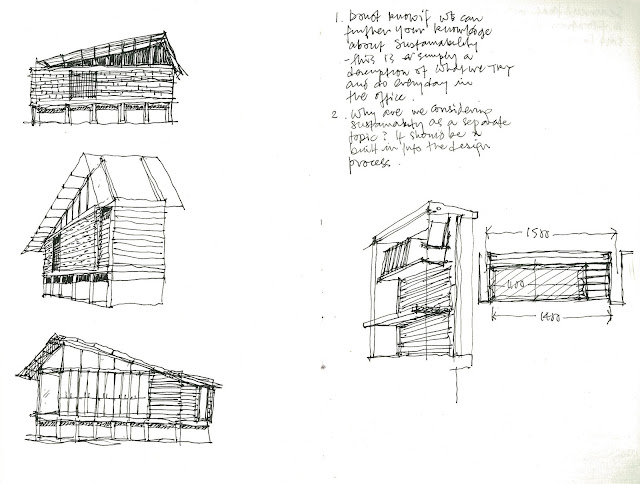 1. Donot know if we can
further your knowledge
about sustainability
- this is simply a
description of what we try
and do everyday in
the office.
2. Why are we considering
sustainability as a separate
topic? It should be a
built in into the design
process.
1500
400
1400